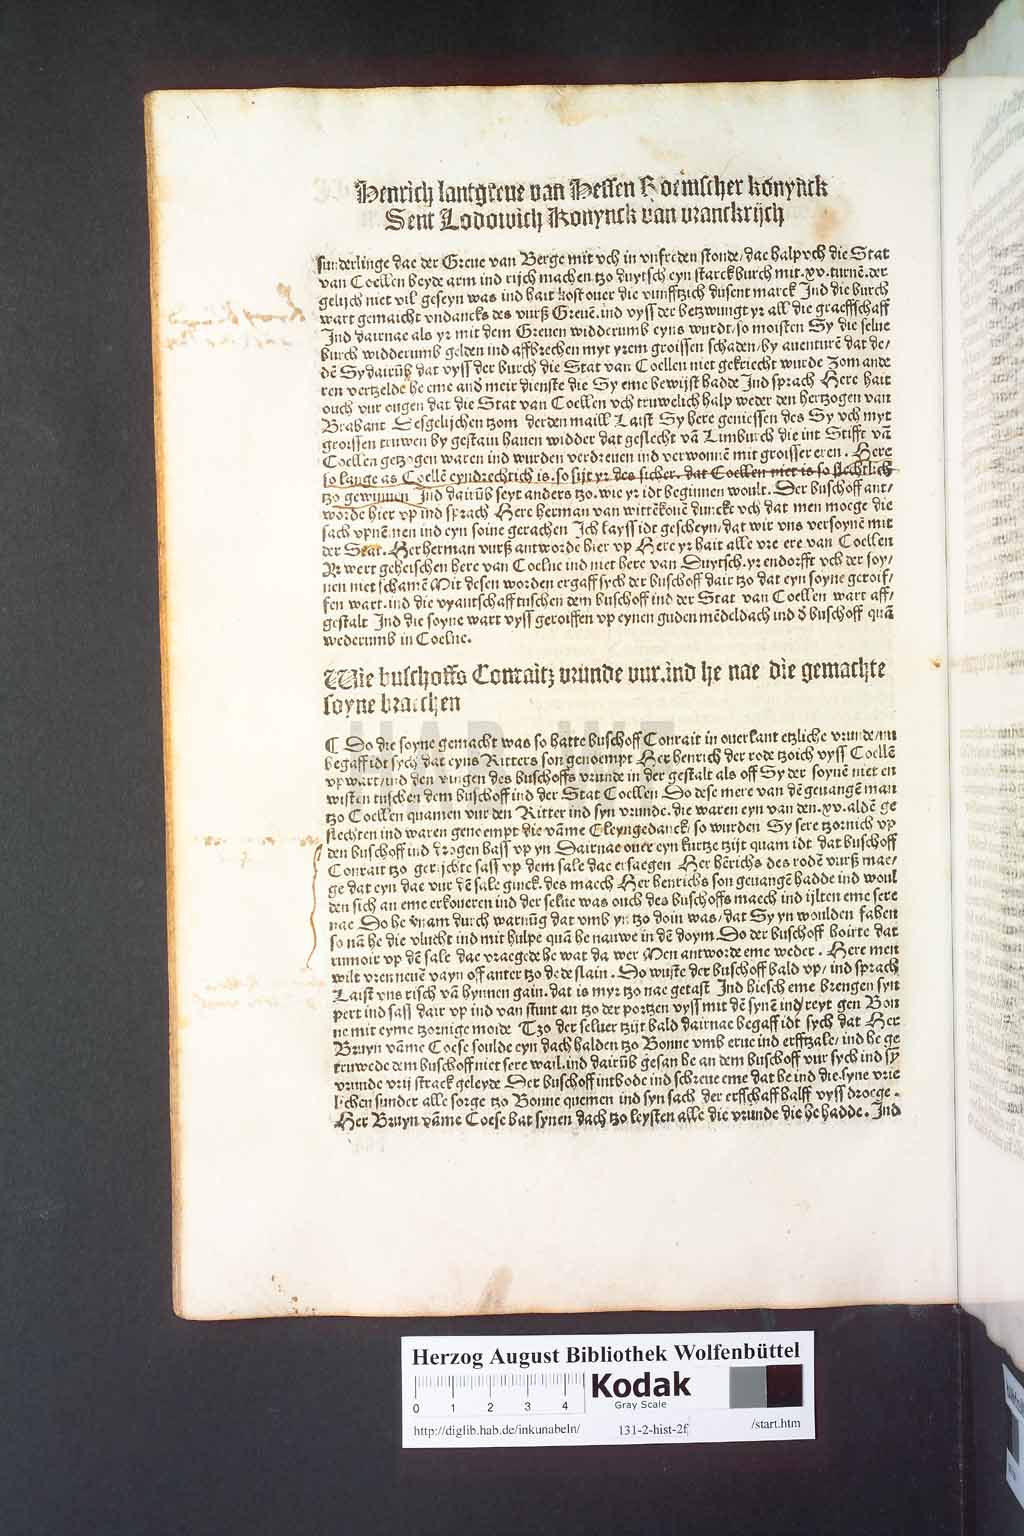 Henrich lantgreue van Hessen Roemscher konynck
Sent Lodowich Konynck van vranckrijch
sunderlinge dae der Greue van Berge mit vch in vnfreden stonde/dae halp vch die Stat
van Coellen beyde arm ind rijch machen tzo duytsch eyn starck burch mit .xv. turnē. der
gelijch niet vil geseyn was ind hait kost ouer die vunfftzich dusent marck Ind die burch
wart gemaicht vndancks des vurß Greuē. ind vyss der betzwungt yr all die graeffschaff
Ind dairnae als yr mit dem Greuen widderumb eyns wurdt/so moisten Sy die selue
burch widderumb gelden ind affbrechen myt yrem groissen schaden/by auenturē dat de/
dē Sy dairūb dat vyss der burch die Stat van Coellen niet gekriecht wurde Zom ande
ren vertzelde he eme and meir dienste die Sy eme bewijst hadde Ind sprach Here hait
ouch vur ougen dat die Stat van Coellen vch truwelich halp weder den hertzogen van
Brabant Desgelijchen tzom derden maill Laist Sy here geniessen des Sy vch myt
groissen truwen by gestain hauen widder dat geslecht vā Limburch die int Stifft vā
Coellen getzogen waren ind wurden verdreuen ind verwonnē mit groisser eren. Here
so lange as Coellē eyndrechtich is. so sijt yr des sicher. dat Coellen niet is so slechtlich
tzo gewinnen Ind dairūb seyt anders tzo. wie yr idt beginnen woult. Der buschoff ant/
worde hier vp ind sprach Here herman van wittēkouē dunckt vch dat men moege die
sach vpnemen ind eyn soine gerachen Ich layss idt gescheyn/dat wir vns versoynē mit
der Stat. Her herman vurß antworde hier vp Here yr hait alle vre ere van Coellen
Ir wert geheischen here van Coelne ind niet here van Duytsch. yr endorfft vch der soy/
nen niet schamē Mit desen worden ergaff sych der buschoff dair tzo dat eyn soyne geroif/
fen wart. ind die vyantschaff tuschen dem buschoff ind der Stat van Coellen wart aff/
gestalt Ind die soyne wart vyss geroiffen vp eynen guden mēdeldach ind d buschoff quā
wederumb in Coelne.
Wie buschoffs Conraitz vrunde vur. ind he nae die gemachte
soyne braichen
¶ Do die soyne gemacht was so hatte buschoff Conrait in ouerlant etzliche vrunde/nu
begaff idt sych dat eyns Ritters son genoempt Her henrich der rode tzoich vyss Coellē
vpwart/ind den viengen des buschoffs vrunde in der gestalt als off Sy der soynē niet en
wisten tuschen dem buschoff ind der Stat Coellen Do dese mere van dē geuangē man
tzo Coellen quamen vur den Ritter ind syn vrunde. die waren eyn van den .xv. aldē ge
slechten ind waren geneempt die vāme Cleyngedanck/so wurden Sy sere tzornich vp
den buschoff ind drogen hass vp yn Dairnae ouer eyn kurtze tzijt quam idt dat buschoff
Conrait tzo gerijchte sass vp dem sale dae ersaegen Her hērichs des rodē vurß mae/
ge dat eyn dae vur dē sale ginck. des maech Her henrichs son geuangē hadde ind woul
den sich an eme erkoueren ind der selue was ouch des buschoffs maech ind ijlten eme sere
nae Do he vnam durch warnūg dat vmb yn tzo doin was/dat Sy yn woulden fahen
so nā he die vlucht ind mit hulpe quā he nauwe in dē doym. Do der buschoff hoirte dat
rumoir vp dē sale dae vraegede he wat da wer Men antworde eme weder. Here men
wilt vren neuē vayn off anter tzo dode slain. Do wuste der buschoff bald vp/ ind sprach
Laist vns risch vā bynnen gain. dat is myr tzo nae getast Ind hiesch eme brengen syn
pert ind sass dair vp ind van stunt an tzo der portzen vyss mit dē synē ind reyt gen Bon
ne mit eyme tzornige moide Tzo der seluer tzijt bald dairnae begaff idt sych dat Her
Bruyn vāme Coese soulde eyn dach halden tzo Bonne vmb erue ind erfftzale/ ind he ge
truwede dem buschoff niet sere wail. ind dairūb gesan he an dem buschoff vur sych ind sȳ
vrunde vrij strack geleyde Der buschoff intbode ind schreue eme dat he ind die syne vrie
lichen sunder alle sorge tzo Bonne quemen ind syn sach der erffschaff halff vyss droege.
Her Bruyn vāme Coese bat synen dach tzo leysten alle die vrunde die he hadde. Ind
Herzog August Bibliothek Wolfenbüttel
0 1 2 3 4
Kodak
Gray Scale
http://diglib.hab.de/inkunabeln/ 131-2-hist-2f /start.htm